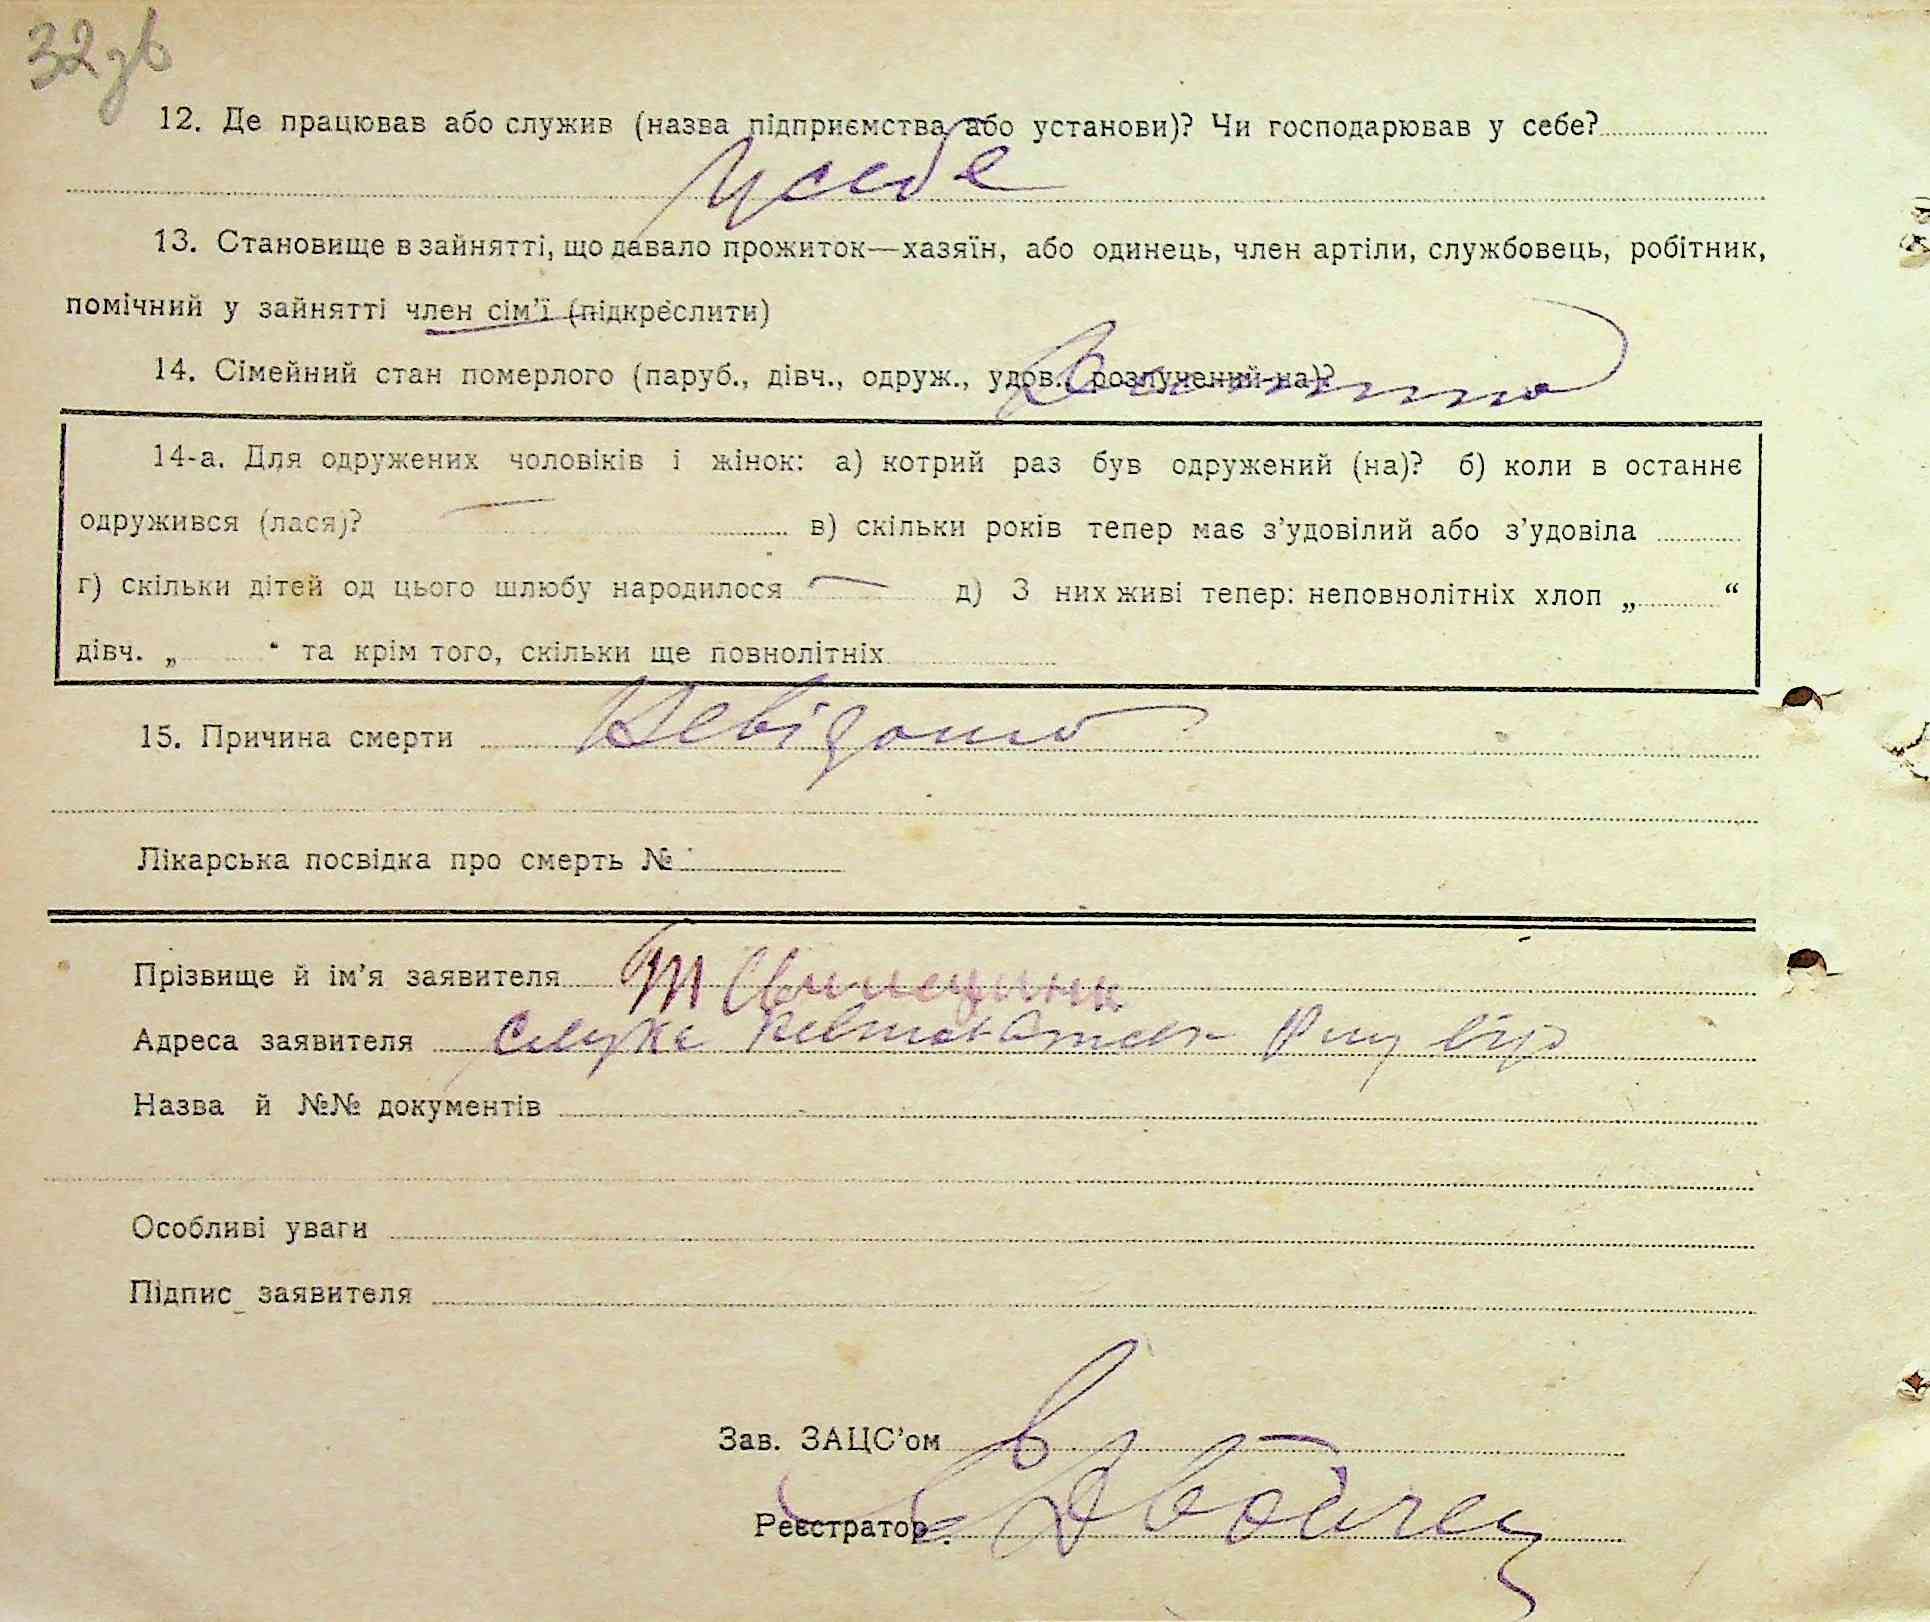 32зв
12. Де працював або служив (назва підприємства або установи)? Чи господарював у себе?
У себе
13. Становище в зайнятті, що давало прожиток—хазяїн, або одинець, член артіли, службовець, робітник,
помічний у зайнятті член сім'ї (підкреслити)
14. Сімейний стан померлого (паруб., дівч., одруж., удов., розлучений-на)?
14-а. Для одружених чоловіків і жінок: а) котрий раз був одружений (на)? б) коли в останнє
одружився (лася)? — в) скільки років тепер має з'удовілий або з'удовіла
г) скільки дітей од цього шлюбу народилося — д) З них живі тепер: неповнолітніх хлоп „ “
дівч. „ “ та крім того, скільки ще повнолітніх
15. Причина смерти Невідомо
Лікарська посвідка про смерть №
Прізвище й ім'я заявителя
Адреса заявителя
Назва й №№ документів
Особливі уваги
Підпис заявителя
Зав. ЗАЦС'ом
Реєстратор.